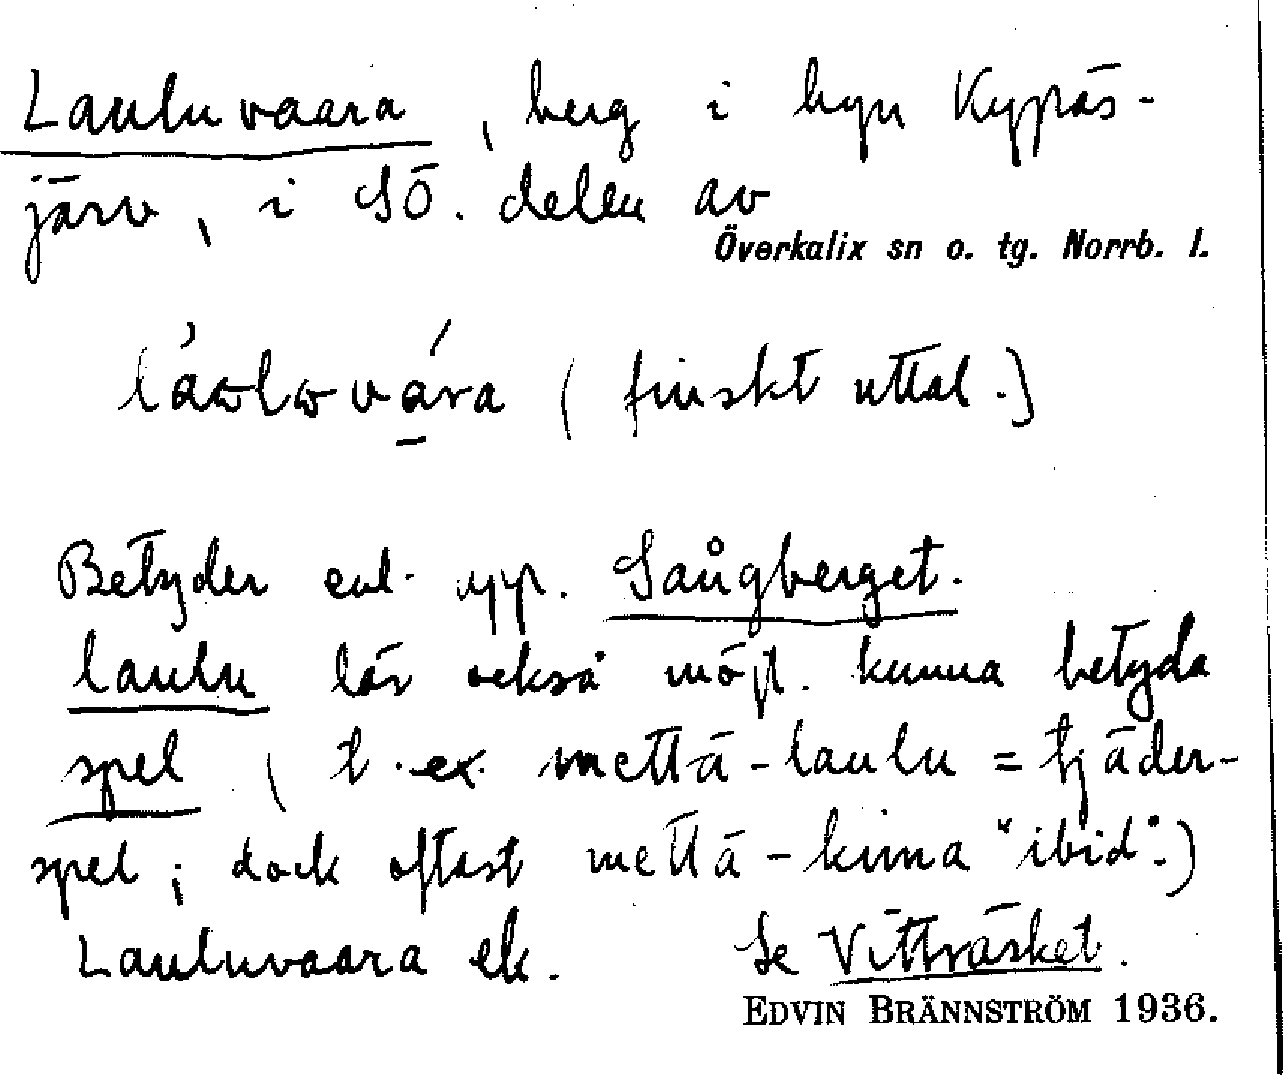 Lauluvaara, berg i byn Kypäs-
järv, i SÖ. delen av
Överkalix sn o. tg. Norrb. l.
(finskt uttal.)
Betyder enl. upp. Sångberget.
laulu lär också möjl. kunna betyda
spel (t.ex. mettä-laulu = tjäder-
spel; dock oftast mettä-kima "ibid".)
Lauluvaara ek. Se Vitträsket.
EDVIN BRÄNNSTRÖM 1936.